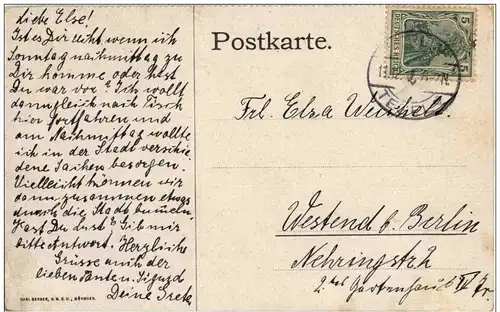 liebe Else!
Ist es Dir recht wenn ich
Sonntag nachmittag zu
Dir komme oder hast
Du was vor? Ich wollt
dann gleich nach Tisch
hin fortfahren und
am Nachmittag wollte
ich in der Stadt verschie
dene Sachen besorgen.
Vielleicht können wir
dann zusammen etwas
durch die Stadt bummeln.
Hast Du Lust? Gib mir
bitte Antwort. Herzliche
Grüsse auch der
lieben Tanten u. Sigurd
Deine Grete
CARL GERBER, G.M.B.H., MÜNCHEN.
Postkarte.
DEUTSCHES REICH
5 5
Frl. Elsa
Westend b. Berlin
Nehringstr. 2
2. Gartenhaus IV Tr.